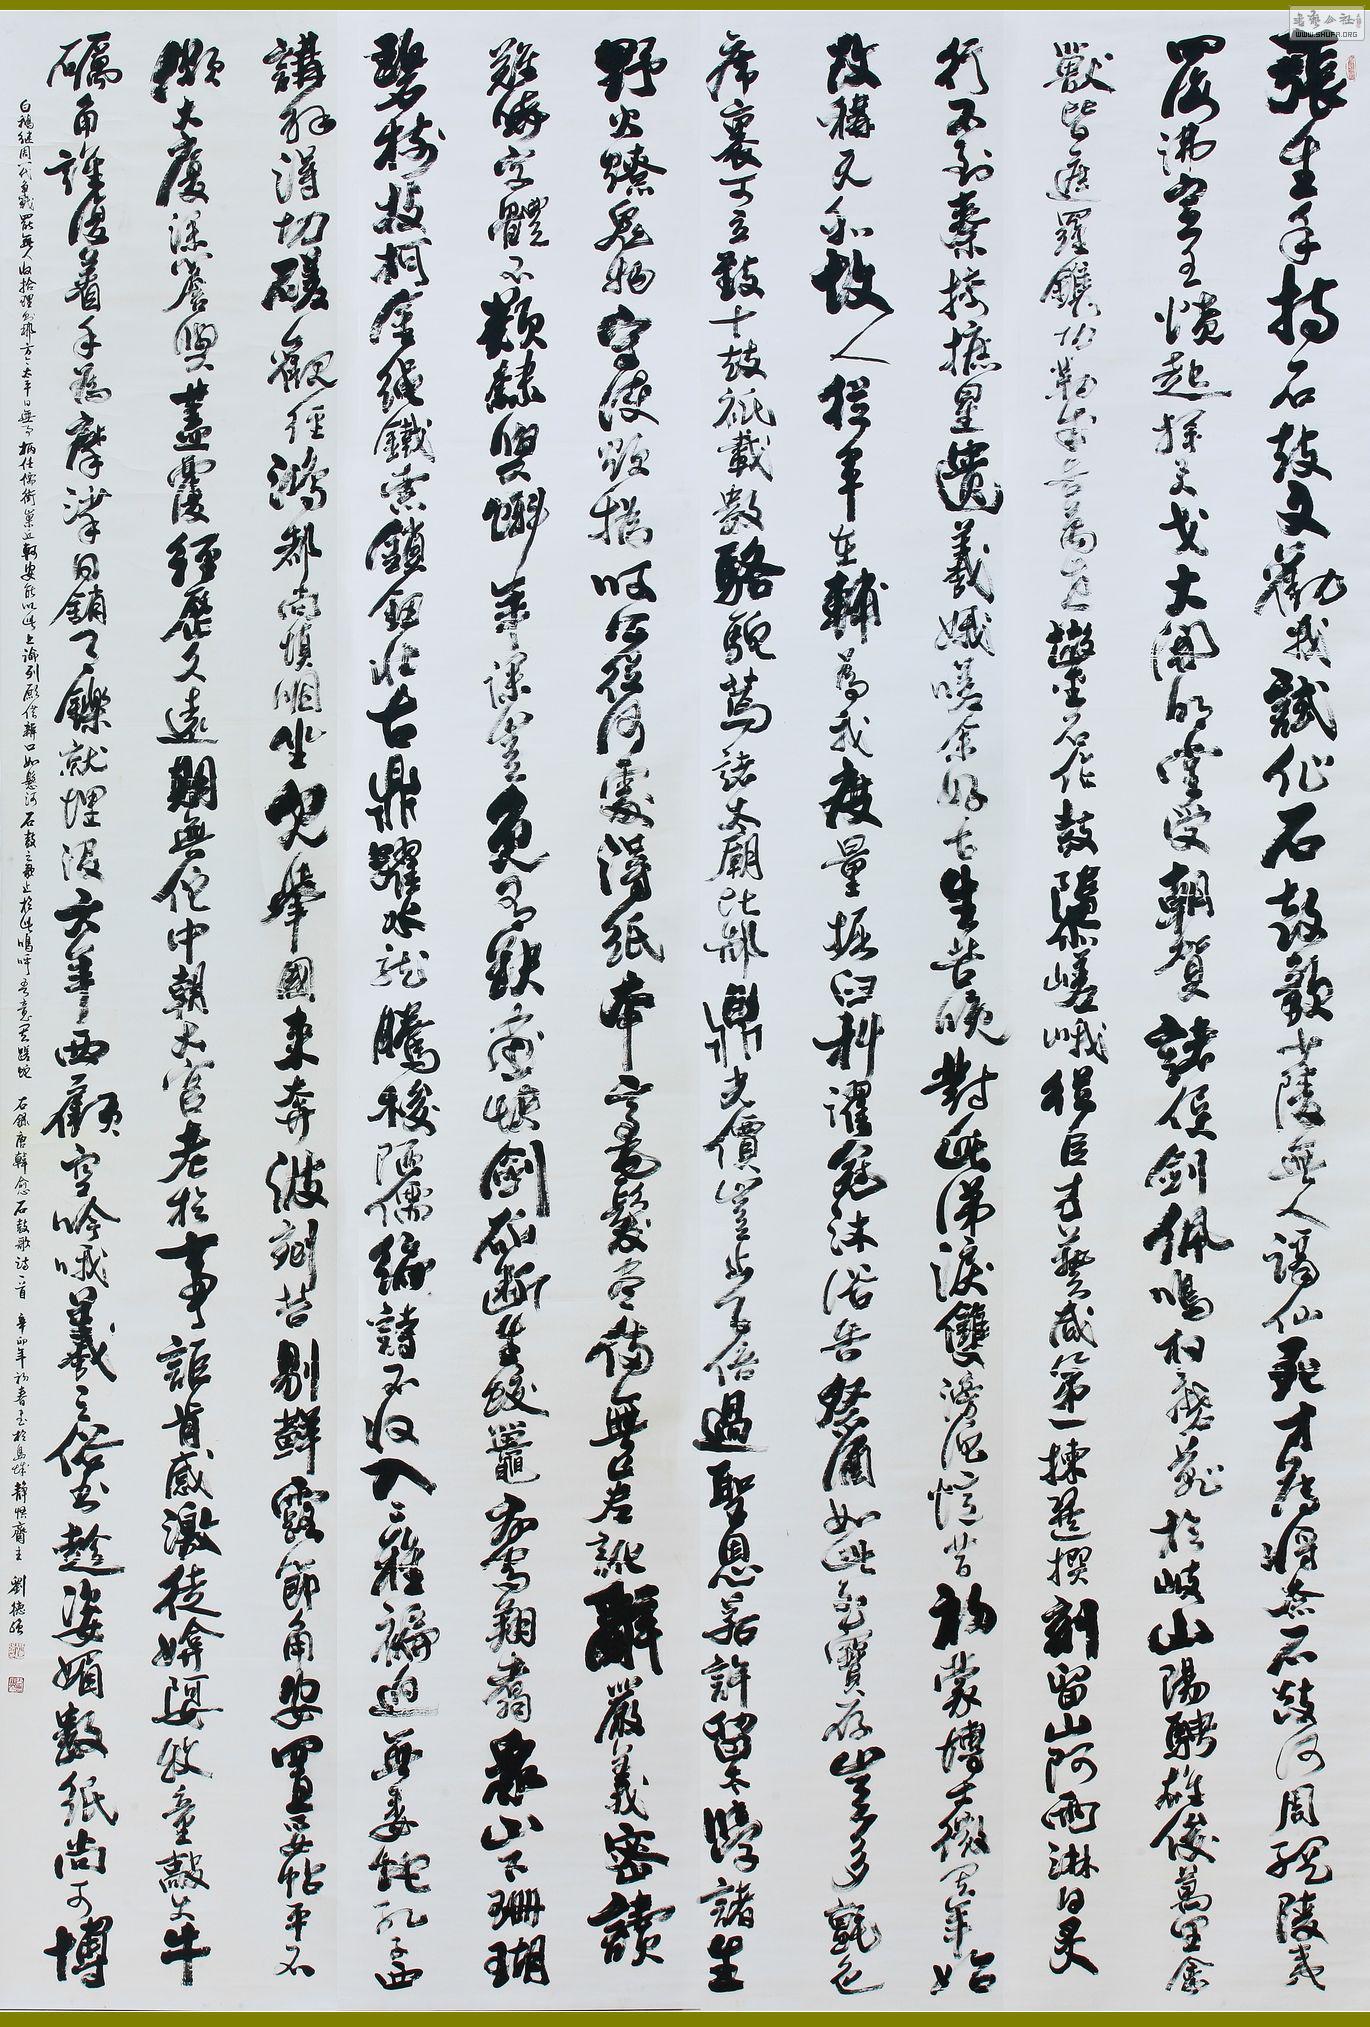 張生手持石鼓文勸我試作石鼓歌少陵無人謫仙死才薄將奈石鼓何周綱陵夷
四海沸宣王憤起揮天戈大開明堂受朝賀諸侯劍佩鳴相磨蒐於岐山陽騁雄俊萬里禽
獸皆遮羅鐫功勒成告萬世鑿石作鼓隳嵯峨從臣才藝咸第一揀選撰刻留山阿雨淋日炙
行不到秦掎摭星遺羲娥嗟余好古生苦晚對此涕淚雙滂沱憶昔初蒙博士徵其年始
改稱元和故人從軍在輔為我度量掘臼科濯冠沐浴告祭酒如此至寶存豈多氈包
席裹可立致十鼓祇載數駱駝薦諸太廟比郜鼎光價豈止百倍過聖恩若許留太學諸生
野火燎鬼物守護煩撝呵公從何處得紙本毫髮盡備無差訛辭嚴義密讀
難曉字體不類隸與蝌年深豈免有缺畫快劍斫斷生蛟鼉鸞翔鳳翥眾山下珊瑚
碧樹枝柯金繩鐵索鎖鈕壯古鼎躍水龍騰梭陋儒編詩不收入二雅褊迫無委蛇孔子西
講解得切磋觀經鴻都尚填咽坐見舉國來奔波剜苔剔蘚露節角安置妥帖平不
頗大廈深簷與蓋覆經歷久遠期無佗中朝大官老於事詎肯感激徒媕婀牧童敲火牛
礪角誰復著手為摩挲日銷月鑠就埋沒六年西顧空吟哦羲之俗書趁姿媚數紙尚可博
白鵝繼周八代爭戰罷無人收拾理則那方今太平日無事柄任儒術崇丘軻安能以此上論列願借辯口如懸河石鼓之歌止於此嗚呼吾意其蹉跎 右錄唐韓愈石鼓歌詩一首 辛卯年初春書於島城靜齋主 劉德
書藝公社
WWW.SHUFA.ORG